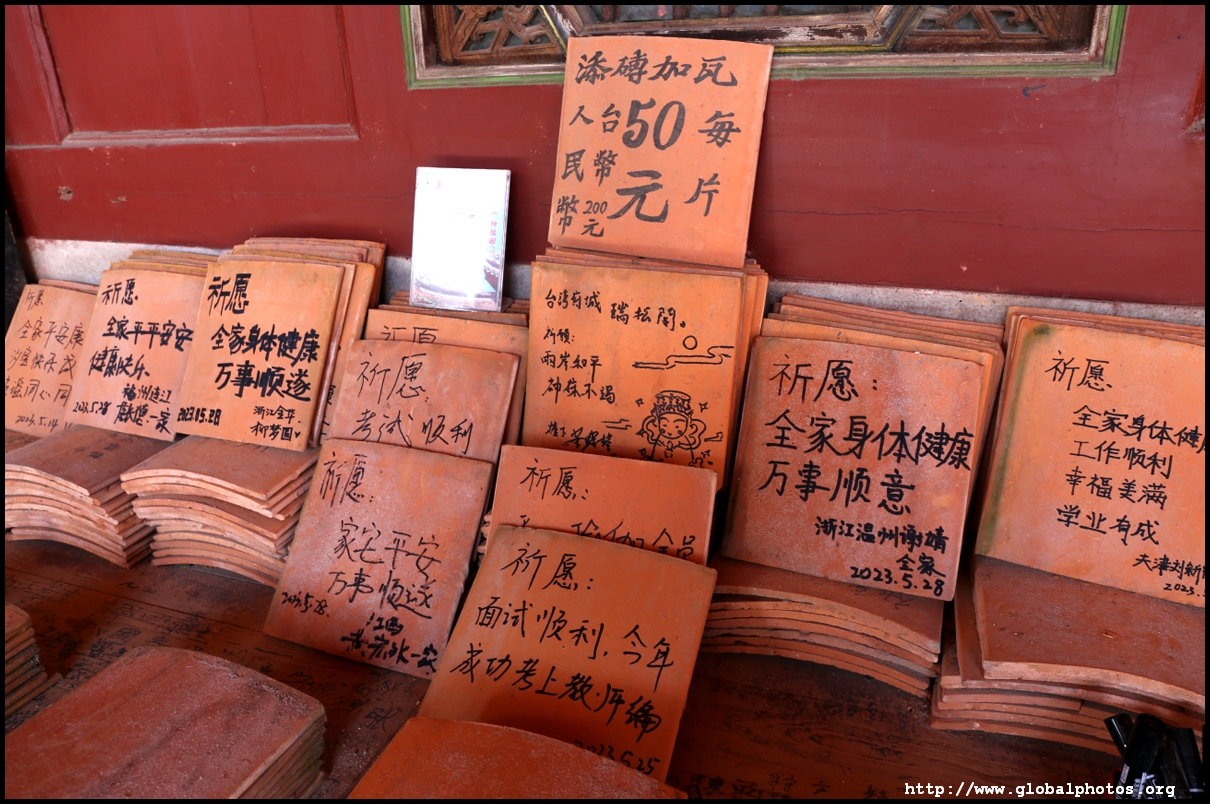 添磚加瓦
每片
50元
台幣200元
人民幣
祈愿
全家平安健康
2023.5.14
祈愿
全家平平安安
健康快乐
福州连江
2023.5.28
一家
祈愿
全家身体健康
万事顺遂
2023.05.28
浙江金华
柳梦圆
祈愿
祈愿:
考试顺利
祈愿:
家宅平安
万事顺遂
2023.5.28.
江西
一家
台湾府城
瑞松閣。
祈願
兩岸和平
祈愿:
祈愿:
面试顺利,今年
成功考上教师编
2023.5.25
祈愿:
全家身体健康
万事顺意
浙江温州谢婧
全家
2023.5.28
祈愿
全家身体健康
工作顺利
幸福美满
学业有成
天津刘新
2023.5
http://www.globalphotos.org